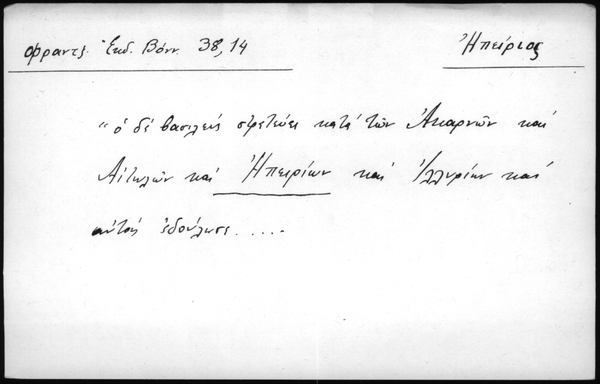 Φραντζ. Ἐκδ. Βόνν. 38,14
Ἠπείριος
"ὁ δέ βασιλεύς στρατεύει κατά τῶν Ἀκαρνῶν καί
Αἰτωλῶν καί Ἠπειρίων καί Ἰλλυρίων καί
αὐτούς ἐδούλωσε.....